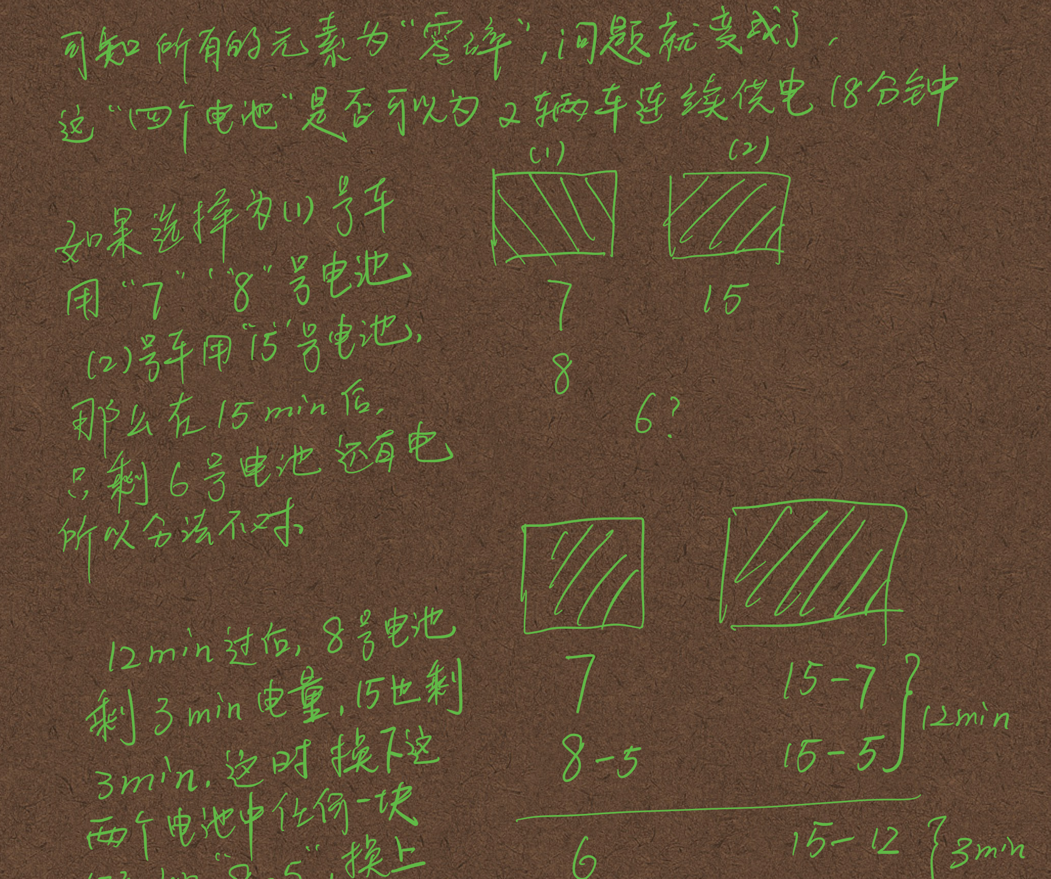 可知所有的元素为“零碎”,问题就变成了,
这“四个电池”是否可以为2辆车连续供电18分钟
(1) (2)
如果选择为(1)号车
用“7”“8”号电池
(2)号车用“15”号电池,
那么在15min后,
只剩6号电池还有电
所以分法不对。
7 15
8
6?
12min过后,8号电池
剩3min电量,15也剩
3min.这时换下这
两个电池中任何一块
“8-5”,换上
7 15-7
8-5 15-5
12min
6 15-12
3min